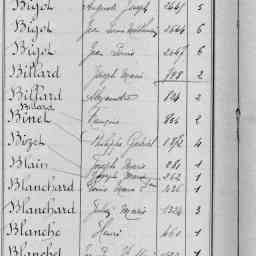 Bigot Auguste Joseph 2661 5
Bigot Jean Louis 2664 6
Bigot Jean Louis 2667 6
Billard Joseph Marie 798 2
Billard Alexandre 824 2
Billard
Binet 866 2
Bizet Philippe Gabriel 4
Blain Joseph Marie 281 1
Joseph Marie 262 1
Blanchard Louis Marie 426 1
Blanchard Jules Marie 1324 3
Blanche Henri 460 1
Blanchet